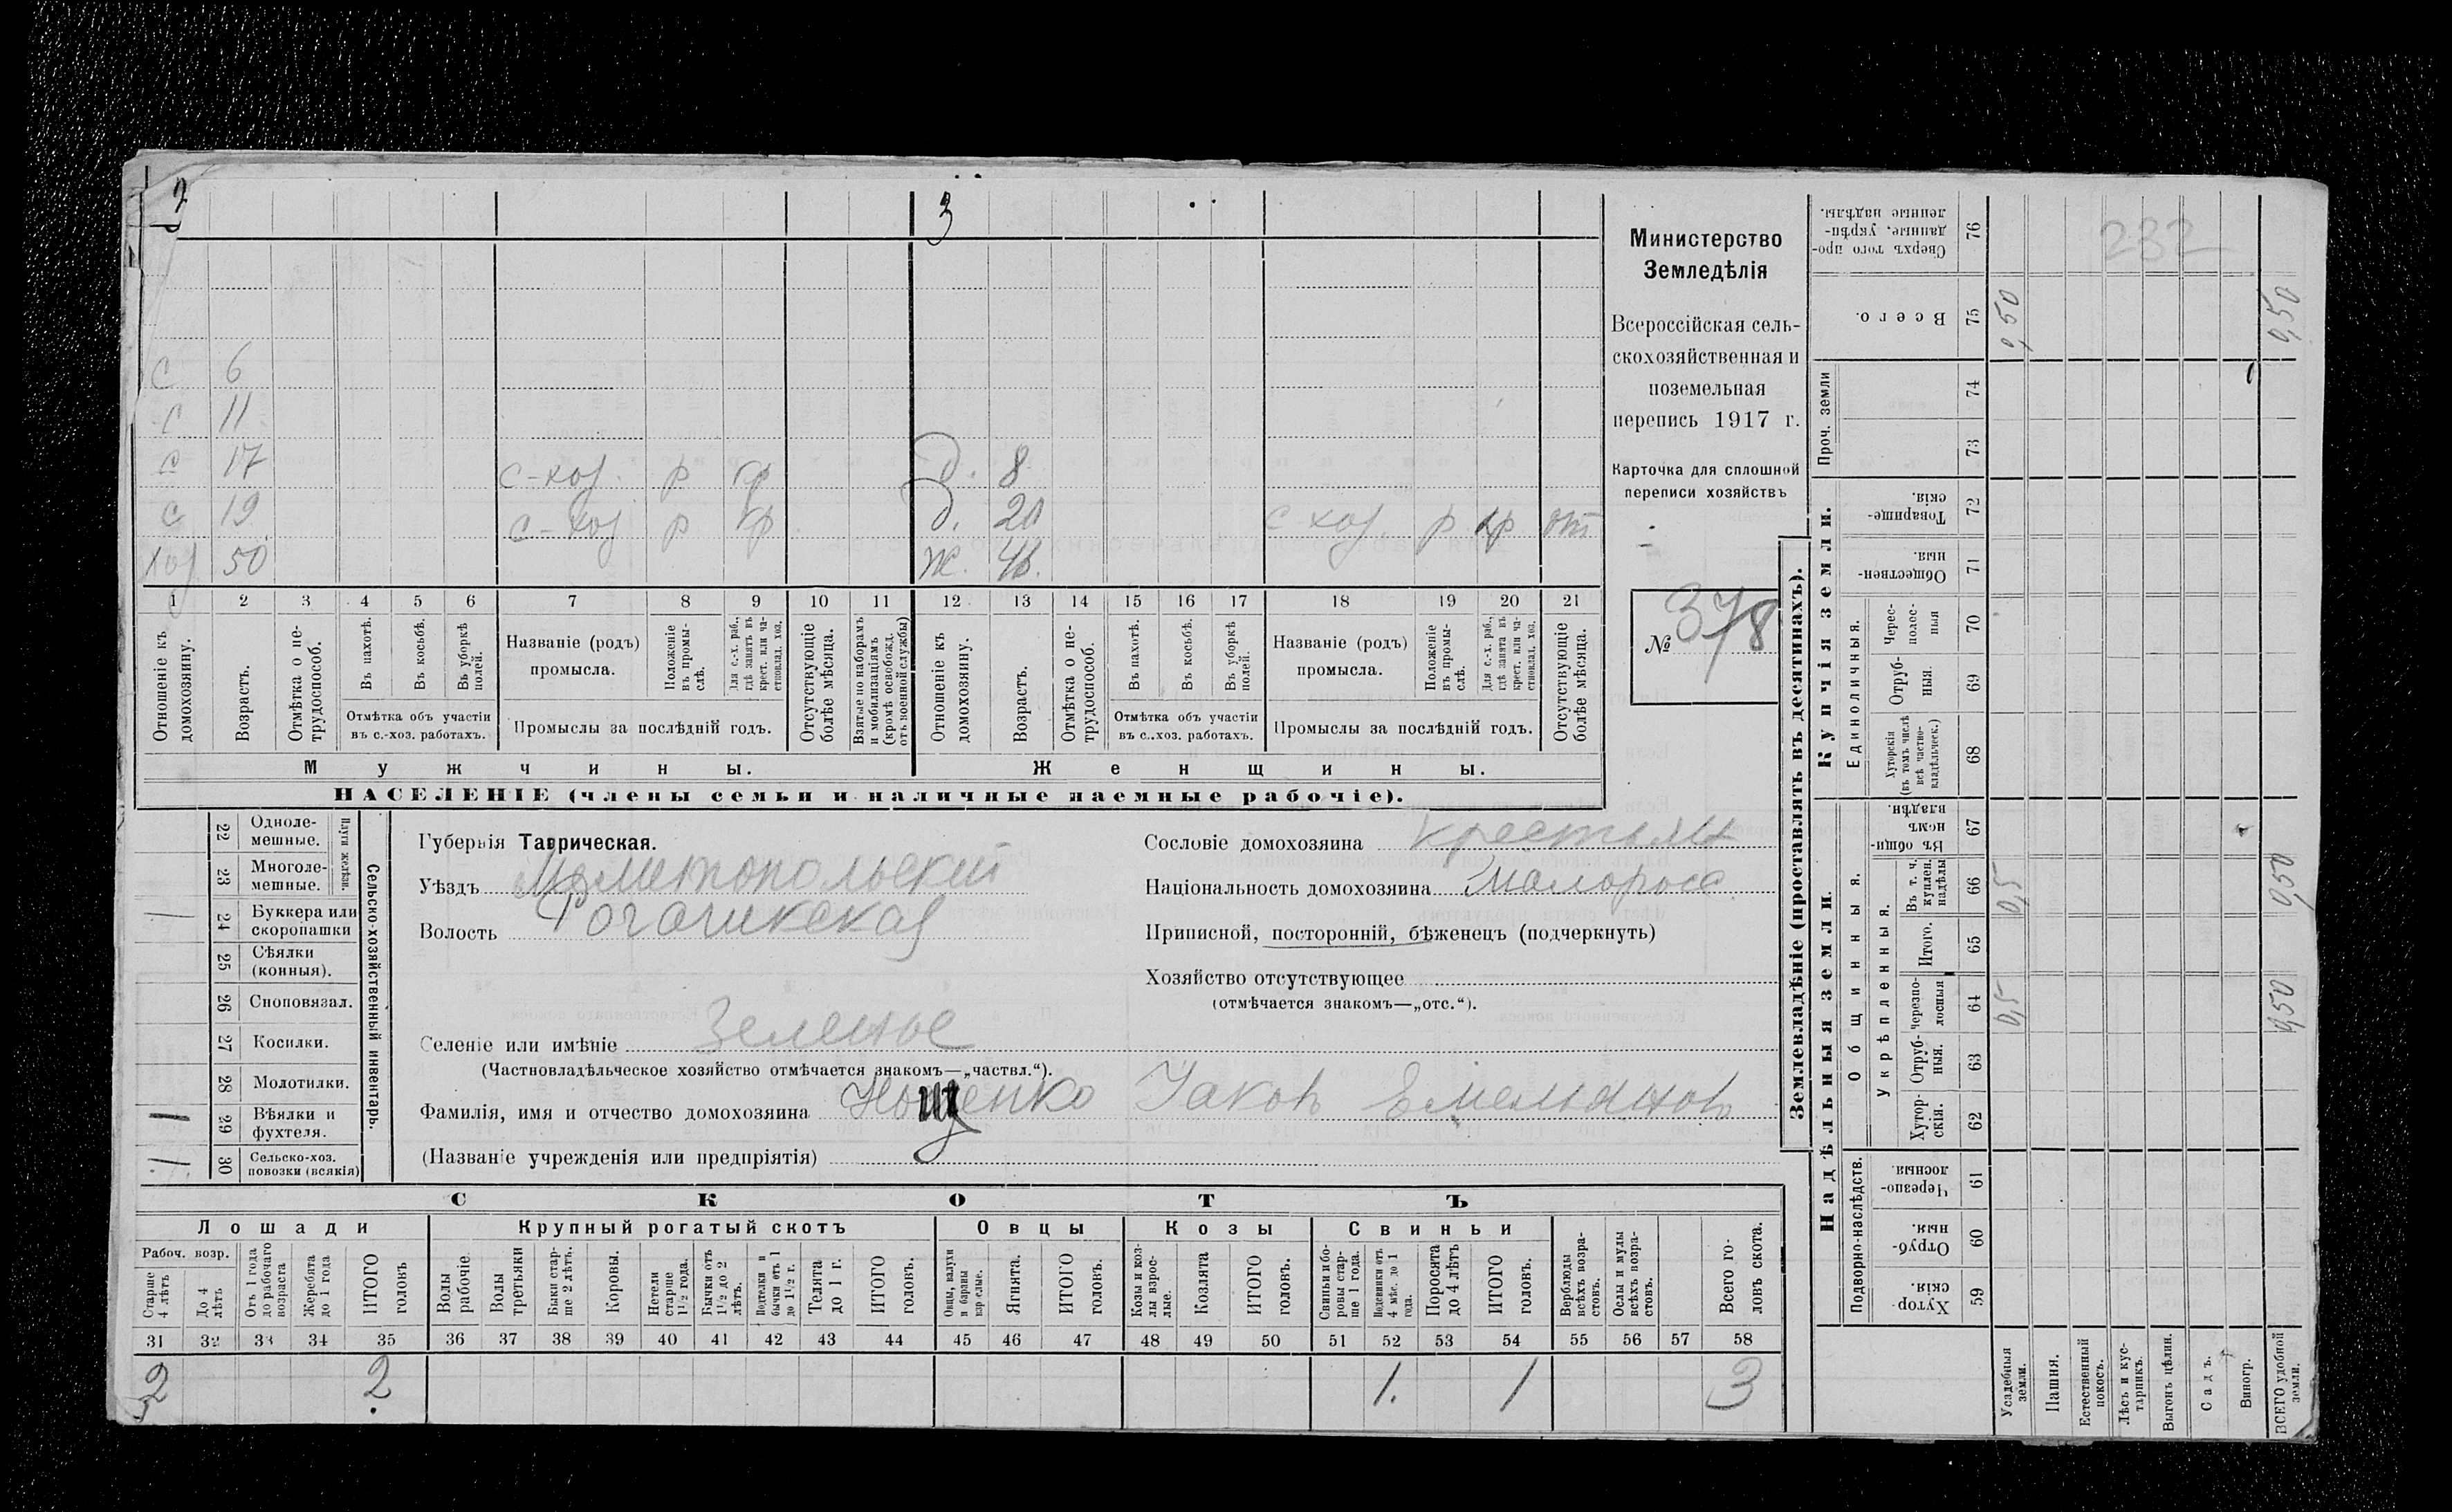 2
3
с 6
с 11
с 17 с-хоз. р кр д. 8
с 19 с-хоз р кр д. 20 с хоз р кр от
Хоз 50 ж. 46.
1 2 3 4 5 6 7 8 9 10 11 12 13 14 15 16 17 18 19 20 21
Отношеніе къ домохозяину.
Возрастъ.
Отмѣтка о нетрудоспособ.
Въ пахотѣ.
Въ косьбѣ.
Въ уборкѣ полей.
Отмѣтка объ участіи
въ с.-хоз. работахъ.
Названіе (родъ)
промысла.
Положеніе въ промыслѣ.
Для с.-х. раб., гдѣ занятъ въ крест. или частновлад. хоз.
Промыслы за послѣдній годъ.
Отсутствующіе болѣе мѣсяца.
Взятые по наборамъ и мобилизаціямъ (кромѣ освобожд. отъ военной службы)
Отношеніе къ домохозяину.
Возрастъ.
Отмѣтка о нетрудоспособ.
Въ пахотѣ.
Въ косьбѣ.
Въ уборкѣ полей.
Отмѣтка объ участіи
въ с..хоз. работахъ.
Названіе (родъ)
промысла.
Положеніе въ промыслѣ.
Для с.-х. раб., гдѣ занята въ крест. или частновлад. хоз.
Промыслы за послѣдній годъ.
Отсутствующіе болѣе мѣсяца.
Мужчины.
Женщины.
НАСЕЛЕНІЕ (члены семьи и наличные наемные рабочіе).
Министерство
Земледѣлія
Всероссійская сель-
скохозяйственная и
поземельная
перепись 1917 г.
Карточка для сплошной
переписи хозяйствъ
№ 378
22 Одноле-
мешные.
23 Многоле-
мешные.
Плуги желѣзн.
24 Буккера или
скоропашки
25 Сѣялки
(конныя).
26 Сноповязал.
27 Косилки.
28 Молотилки.
1 29 Вѣялки и
фухтеля.
1 30 Сельско-хоз.
повозки (всякія)
Сельско-хозяйственный инвентарь.
Губернія Таврическая.
Уѣздъ Мелитопольскій
Волость Рогачикская
Селеніе или имѣніе Зеленое
(Частновладѣльческое хозяйство отмѣчается знакомъ—„частвл.“).
Фамилія, имя и отчество домохозяина Нощенко Яковъ Емельяновъ
(Названіе учрежденія или предпріятія)
Сословіе домохозяина крестьян
Національность домохозяина малоросс
Приписной, посторонній, бѣженецъ (подчеркнуть)
Хозяйство отсутствующее
(отмѣчается знакомъ—„отс.“).
СКОТЪ
Лошади
Крупный рогатый скотъ
Овцы
Козы
Свиньи
Рабоч. возр.
Старше 4 лѣтъ
До 4 лѣтъ
Отъ 1 года до рабочаго возраста
Жеребята до 1 года
ИТОГО головъ
Волы рабочіе
Волы третьяки
Быки старше 2 лѣтъ.
Коровы.
Нетели старше 1½ года.
Бычки отъ 1½ до 2 лѣтъ.
Подтелки и бычки отъ 1 до 1½ г.
Телята до 1 г.
ИТОГО головъ.
Овцы, валухи и бараны взрослые.
Ягнята.
ИТОГО головъ.
Козы и козлы взрослые.
Козлята
ИТОГО головъ.
Свиньи и боровы старше 1 года.
Подсвинки отъ 4 мѣс. до 1 года.
Поросята до 4 лѣтъ
ИТОГО головъ.
Верблюды всѣхъ возрастовъ.
Ослы и мулы всѣхъ возрастовъ.
Всего головъ скота.
31 32 33 34 35 36 37 38 39 40 41 42 43 44 45 46 47 48 49 50 51 52 53 54 55 56 57 58
2 2 1. 1 3
Землевладѣніе (проставлять въ десятинахъ).
Надѣльныя земли.
Купчія земли.
Проч. земли
Общинныя.
Укрѣпленныя.
Единоличныя.
Подворно-наслѣдств.
Сверхъ того проданные, укрѣпленные надѣлы. 76
Всего. 75
74
73
Товарищескія. 72
Общественныя. 71
Черес-полес-ныя 70
Отруб-ныя. 69
Хуторскія (въ томъ числѣ всѣ частно-владѣльческ.) 68
Въ общинномъ владѣн. 67
Въ т. ч. куплен. надѣлы 66
Итого. 65
Черезпо-лосныя 64
Отруб-ныя. 63
Хутор-скія. 62
Черезпо-лосныя. 61
Отруб-ныя. 60
Хутор-скія. 59
Усадебныя земли.
Пашня.
Естественный покосъ.
Лѣсъ и кустарникъ.
Выгонъ цѣлин.
Садъ.
Виногр.
ВСЕГО удобной земли.
232
0,50
0,50
0,5
0,50
0,5
0,50